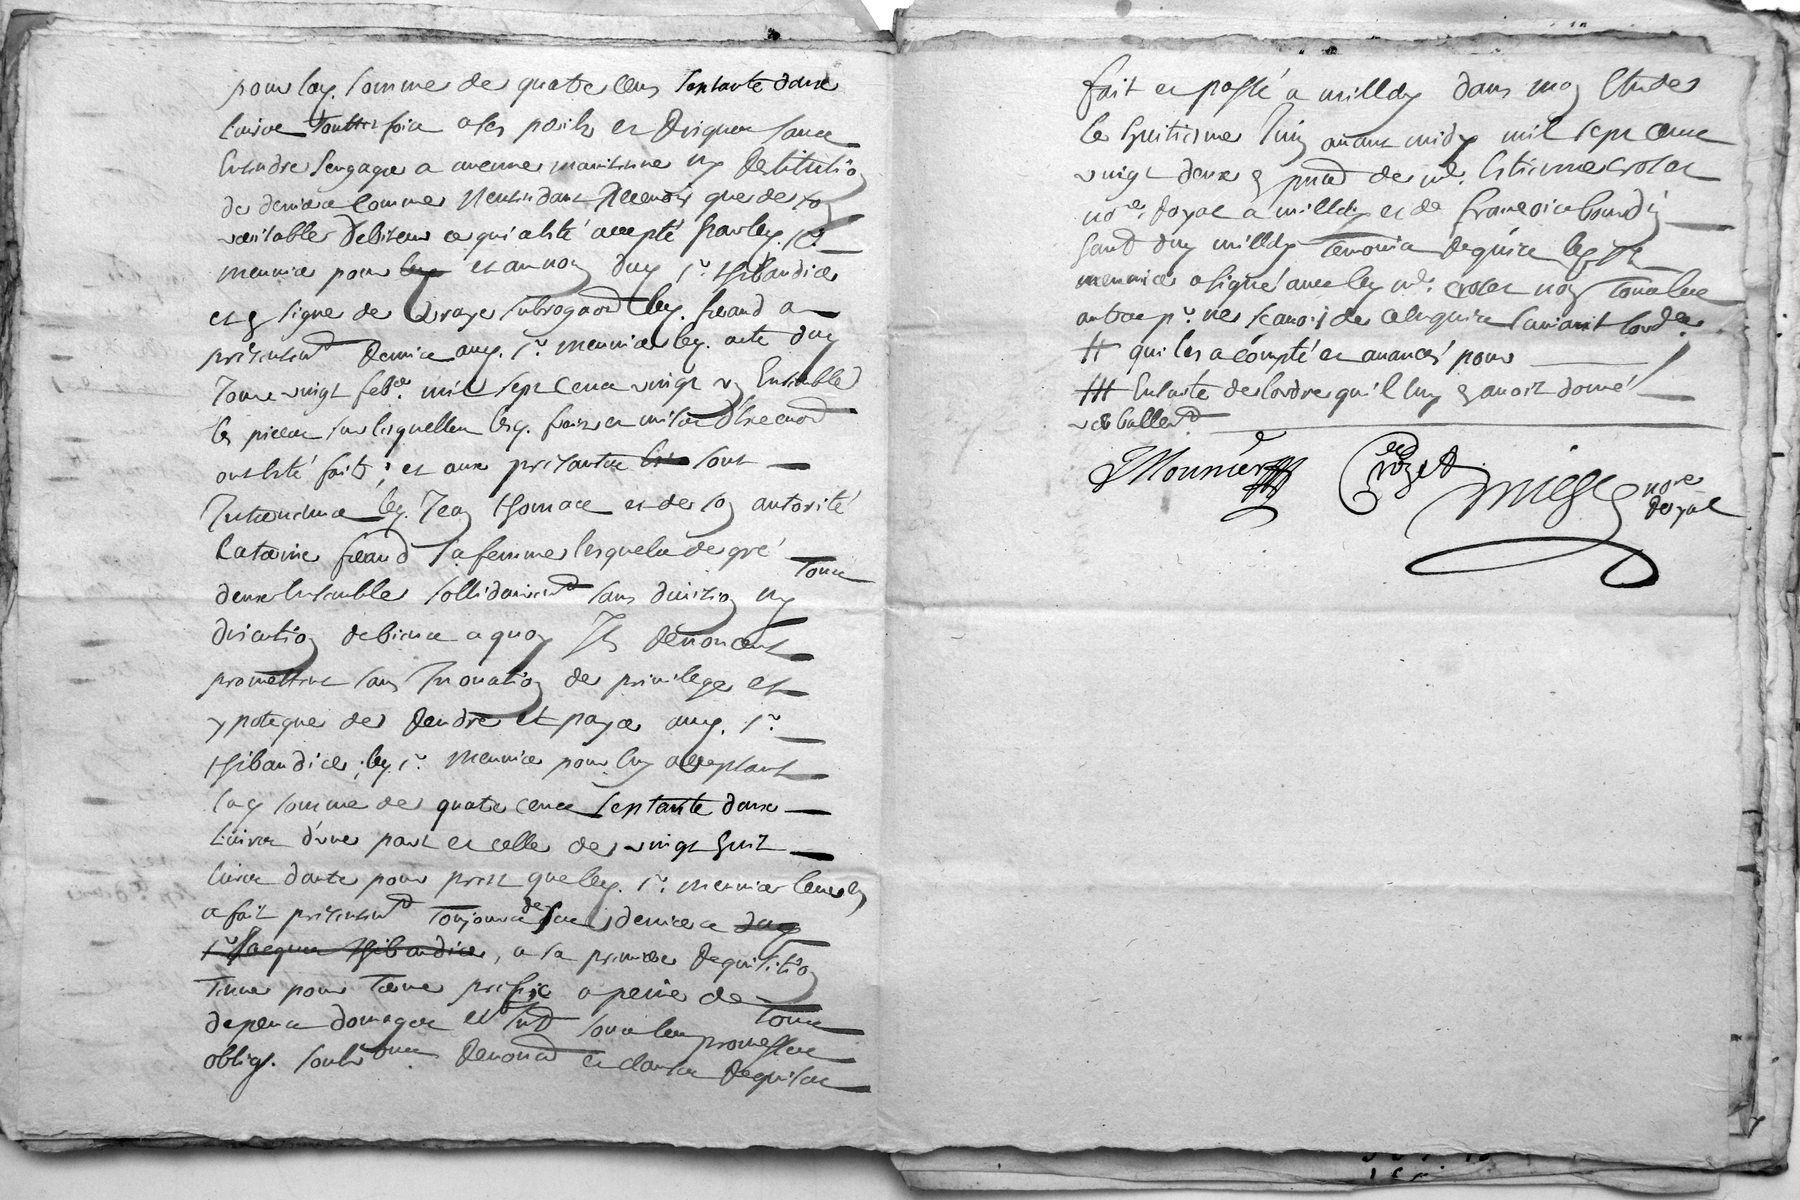 pour lad. somme de quatre cens septante deux
livres touttefois a ses perils et risques sans
entendre s'engager a aucune maintenue ny restitution
de deniers comme n'entendant recevoir que de son
veritable debiteur ce qui a esté accepté par led. sr.
meunier pour et au nom dud. sr. Thibaudier
et signe de subrogaon led. freaud a
presentemt remis aud. sr. meunier led. acte dud
Jour vingt feb.er mil sept cens vingt un Ensemble
les pieces sur lesquelles lesd. frais et mises d'exeon
ont esté faits, et aux presantes sont
Intervenus led. Jean Thomas et de son autorité
Catarine freaud sa femme lesquels de gré
tous
deux ensemble sollidairemt sans division ny
discution de biens a quoy Ils renoncent
promettent sans Inovation de privilege et
ypoteque de rendre et payer aud. sr.
Thibaudier, led. sr. meunier pour luy acceptant
lad somme de quatre cens septante deux
livres d'une part et celle de vingt huit
livres d'autre pour prest que led. sr. meunier leur en
a fait presentemt toujours des deniers dud
sr Jacques Thibaudier, a la premiere requisition
terme pour terme prefix a peine de tous
depens domages et sous leurs promesses
oblig. renonon et clauses requises
fait et passé a milld dans mon Etude
le huitieme Juin avant midy mil sept cens
vingt deux en pnce de me. Estienne crozet
nore. royal a milld et de francois bourdin
dud milld temoins requis led sr
meunier a signé avec led me. crozet non tous les
autres pr. ne scavoir de ce enquis suivant lordce.
H qui les a compté et avancés pour
HH Ensuite de l'ordre qu'il luy en avoit donné
verballemt
JMounier Crozet
nore
royal